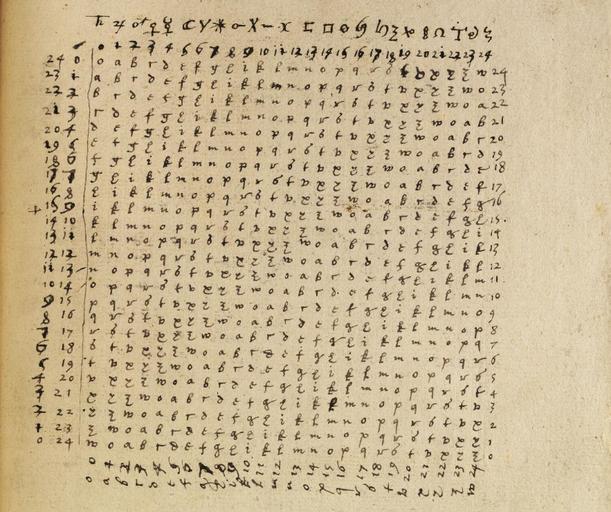 0 1 2 3 4 5 6 7 8 9 10 11 12 13 14 15 16 17 18 19 20 21 22 23 24
24 0 o a b c d e f g h i k l m n o p q r s t v x y z w 24
23 1 a b c d e f g h i k l m n o p q r s t v x y z w o 23
22 2 b c d e f g h i k l m n o p q r s t v x y z w o a 22
21 3 c d e f g h i k l m n o p q r s t v x y z w o a b 21
20 4 d e f g h i k l m n o p q r s t v x y z w o a b c 20
19 5 e f g h i k l m n o p q r s t v x y z w o a b c d 19
18 6 f g h i k l m n o p q r s t v x y z w o a b c d e 18
17 7 g h i k l m n o p q r s t v x y z w o a b c d e f 17
16 8 h i k l m n o p q r s t v x y z w o a b c d e f g 16
+ 15 9 i k l m n o p q r s t v x y z w o a b c d e f g h 15
14 10 k l m n o p q r s t v x y z w o a b c d e f g h i 14
13 11 l m n o p q r s t v x y z w o a b c d e f g h i k 13
12 12 m n o p q r s t v x y z w o a b c d e f g h i k l 12
11 13 n o p q r s t v x y z w o a b c d e f g h i k l m 11
10 14 o p q r s t v x y z w o a b c d e f g h i k l m n 10
9 15 p q r s t v x y z w o a b c d e f g h i k l m n o 9
8 16 q r s t v x y z w o a b c d e f g h i k l m n o p 8
7 17 r s t v x y z w o a b c d e f g h i k l m n o p q 7
6 18 s t v x y z w o a b c d e f g h i k l m n o p q r 6
5 19 t v x y z w o a b c d e f g h i k l m n o p q r s 5
4 20 v x y z w o a b c d e f g h i k l m n o p q r s t 4
3 21 x y z w o a b c d e f g h i k l m n o p q r s t v 3
2 22 y z w o a b c d e f g h i k l m n o p q r s t v x 2
1 23 z w o a b c d e f g h i k l m n o p q r s t v x y 1
0 24 w o a b c d e f g h i k l m n o p q r s t v x y z 0